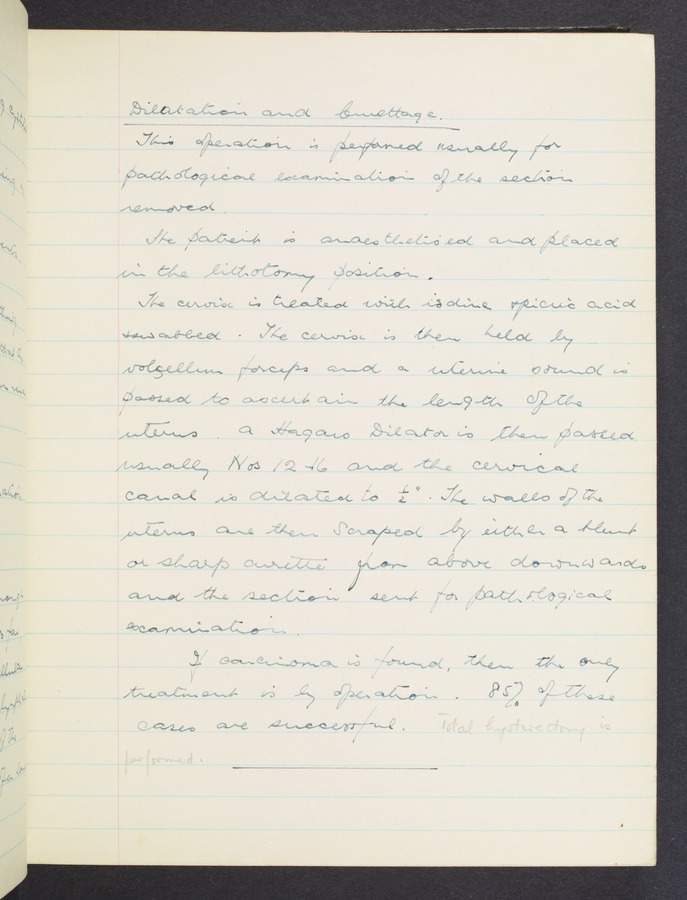 Dilatation and Curettage.
This operation is performed usually for
pathological examination of the section
removed.
The patient is anaesthetised and placed
in the lithotomy position.
The cervix is treated with iodine & picric acid
swabbed. The cervix is then held by
volsellum forceps and a uterine sound is
passed to ascertain the length of the
uterus. a Hagars Dilator is then passed
usually Nos 12-16 and the cervical
canal is dilated to ½". The walls of the
uterus are then scraped by either a blunt
or sharp curette from above downwards
and the section sent for pathological
examination.
If carcinoma is found, then the only
treatment is by operation. 85% of these
cases are successful. Total hysterectomy is
performed.